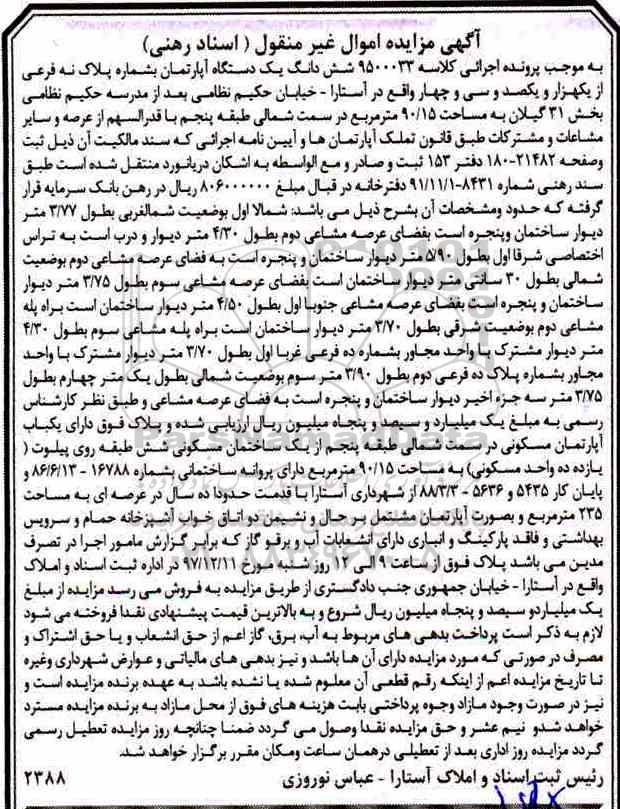 آگهی مزایده اموال غیر منقول ( اسناد رهنی)
به موجب پرونده اجرائی کلاسه ۹۵۰۰۰۳۳ شش دانگ یک دستگاه آپارتمان بشماره پلاک نه فرعی
از یکهزار و یکصد و سی و چهار واقع در آستارا - خیابان حکیم نظامی بعد از مدرسه حکیم نظامی
بخش ۳۱ گیلان به مساحت ۹۰/۱۵ مترمربع در سمت شمالی طبقه پنجم با قدرالسهم از عرصه و سایر
مشاعات و مشترکات طبق قانون تملک آپارتمان ها و آیین نامه اجرائی که سند مالکیت آن ذیل ثبت
وصفحه ۲۱۴۸۲-۱۸۰ دفتر ۱۵۳ ثبت و صادر و مع الواسطه به اشکان دریانورد منتقل شده است طبق
سند رهنی شماره ۸۴۳۱-۹۱/۱۱/۱ دفترخانه در قبال مبلغ ۸۰۶۰۰۰۰۰۰ ریال در رهن بانک سرمایه قرار
گرفته که حدود ومشخصات آن بشرح ذیل می باشد: شمالا اول بوضعیت شمالغربی بطول ۳/۷۷ متر
دیوار ساختمان وپنجره است بفضای عرصه مشاعی دوم بطول ۴/۳۰ متر دیوار و درب است به تراس
اختصاصی شرقا اول بطول ۵/۹۰ متر دیوار ساختمان و پنجره است به فضای عرصه مشاعی دوم بوضعیت
شمالی بطول ۳۰ سانتی متر دیوار ساختمان است بفضای عرصه مشاعی سوم بطول ۳/۷۵ متر دیوار
ساختمان و پنجره است بفضای عرصه مشاعی جنوبا اول بطول ۴/۵۰ متر دیوار ساختمان است براه پله
مشاعی دوم بوضعیت شرقی بطول ۳/۷۰ متر دیوار ساختمان است براه پله مشاعی سوم بطول ۴/۳۰
متر دیوار مشترک با واحد مجاور بشماره ده فرعی غربا اول بطول ۳/۷۰ متر دیوار مشترک با واحد
مجاور بشماره پلاک ده فرعی دوم بطول ۳/۹۰ متر سوم بوضعیت شمالی بطول یک متر چهارم بطول
۳/۷۵ متر سه جزء اخیر دیوار ساختمان و پنجره است به فضای عرصه مشاعی و طبق نظر کارشناس
رسمی به مبلغ یک میلیارد و سیصد و پنجاه میلیون ریال ارزیابی شده و پلاک فوق دارای یکباب
آپارتمان مسکونی در سمت شمالی طبقه پنجم از یک ساختمان مسکونی شش طبقه روی پیلوت (
یازده واحد مسکونی) به مساحت ۹۰/۱۵ مترمربع دارای پروانه ساختمانی بشماره ۱۶۷۸۸ - ۸۶/۶/۱۳ و
پایان کار ۵۴۳۵ و ۵۶۳۶ - ۸۸/۳/۳ از شهرداری آستارا با قدمت حدودا ده سال در عرصه ای به مساحت
۲۳۵ مترمربع و بصورت آپارتمان مشتمل بر حال و نشیمن دو اتاق خواب آشپزخانه حمام و سرویس
بهداشتی و فاقد پارکینگ و انباری دارای انشعابات آب و برقو گاز که برابر گزارش مامور اجرا در تصرف
مدین می باشد پلاک فوق از ساعت ۹ الی ۱۲ روز شنبه مورخ ۹۷/۱۲/۱۱ در اداره ثبت اسناد و املاک
واقع در آستارا - خیابان جمهوری جنب دادگستری از طریق مزایده به فروش می رسد مزایده از مبلغ
یک میلیاردو سیصد و پنجاه میلیون ریال شروع و به بالاترین قیمت پیشنهادی نقدا فروخته می شود
لازم به ذکر است پرداخت بدهی های مربوط به آب، برق، گاز اعم از حق انشعاب و یا حق اشتراک و
مصرف در صورتی که مورد مزایده دارای آن ها باشد و نیز بدهی های مالیاتی و عوارض شهرداری وغیره
تا تاریخ مزایده اعم از اینکه رقم قطعی آن معلوم شده یا نشده باشد به عهده برنده مزایده است و
نیز در صورت وجود مازاد وجوه پرداختی بابت هزینه های فوق از محل مازاد به برنده مزایده مسترد
خواهد شدو نیم عشر و حق مزایده نقدا وصول می گردد ضمنا چنانچه روز مزایده تعطیل رسمی
گردد مزایده روز اداری بعد از تعطیلی درهمان ساعت ومکان مقرر برگزار خواهد شد.
رئیس ثبت اسناد و املاک آستارا - عباس نوروزی ۲۳۸۸
ParsNamadData